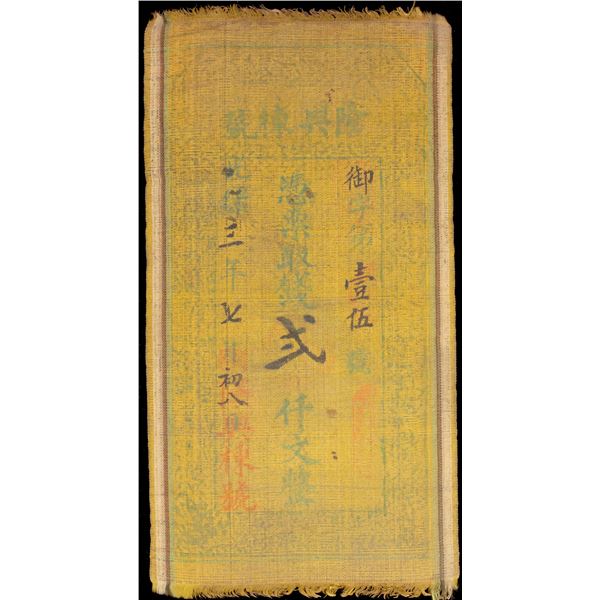 隆興棟號
御字第壹伍號
憑票取錢弍仟文整
光緒三年七月初八
興棟號